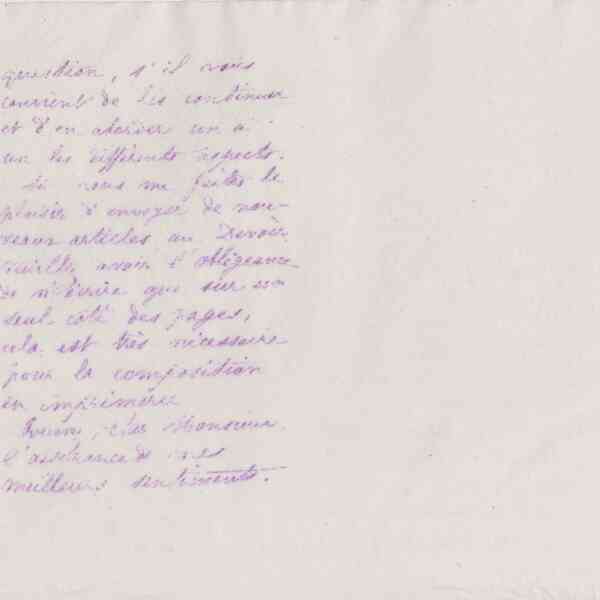 question, s'il vous
convient de les continuer
et d'en aborder un à
un les différents aspects.
Si vous me faites le
plaisir d'envoyer de nou-
veaux articles au Devoir
veuillez avoir l'obligeance
de n'écrire que sur un
seul côté des pages,
cela est très nécessaire
pour la composition
en imprimerie
cher Monsieur,
l'assurance de mes
meilleurs sentiments.